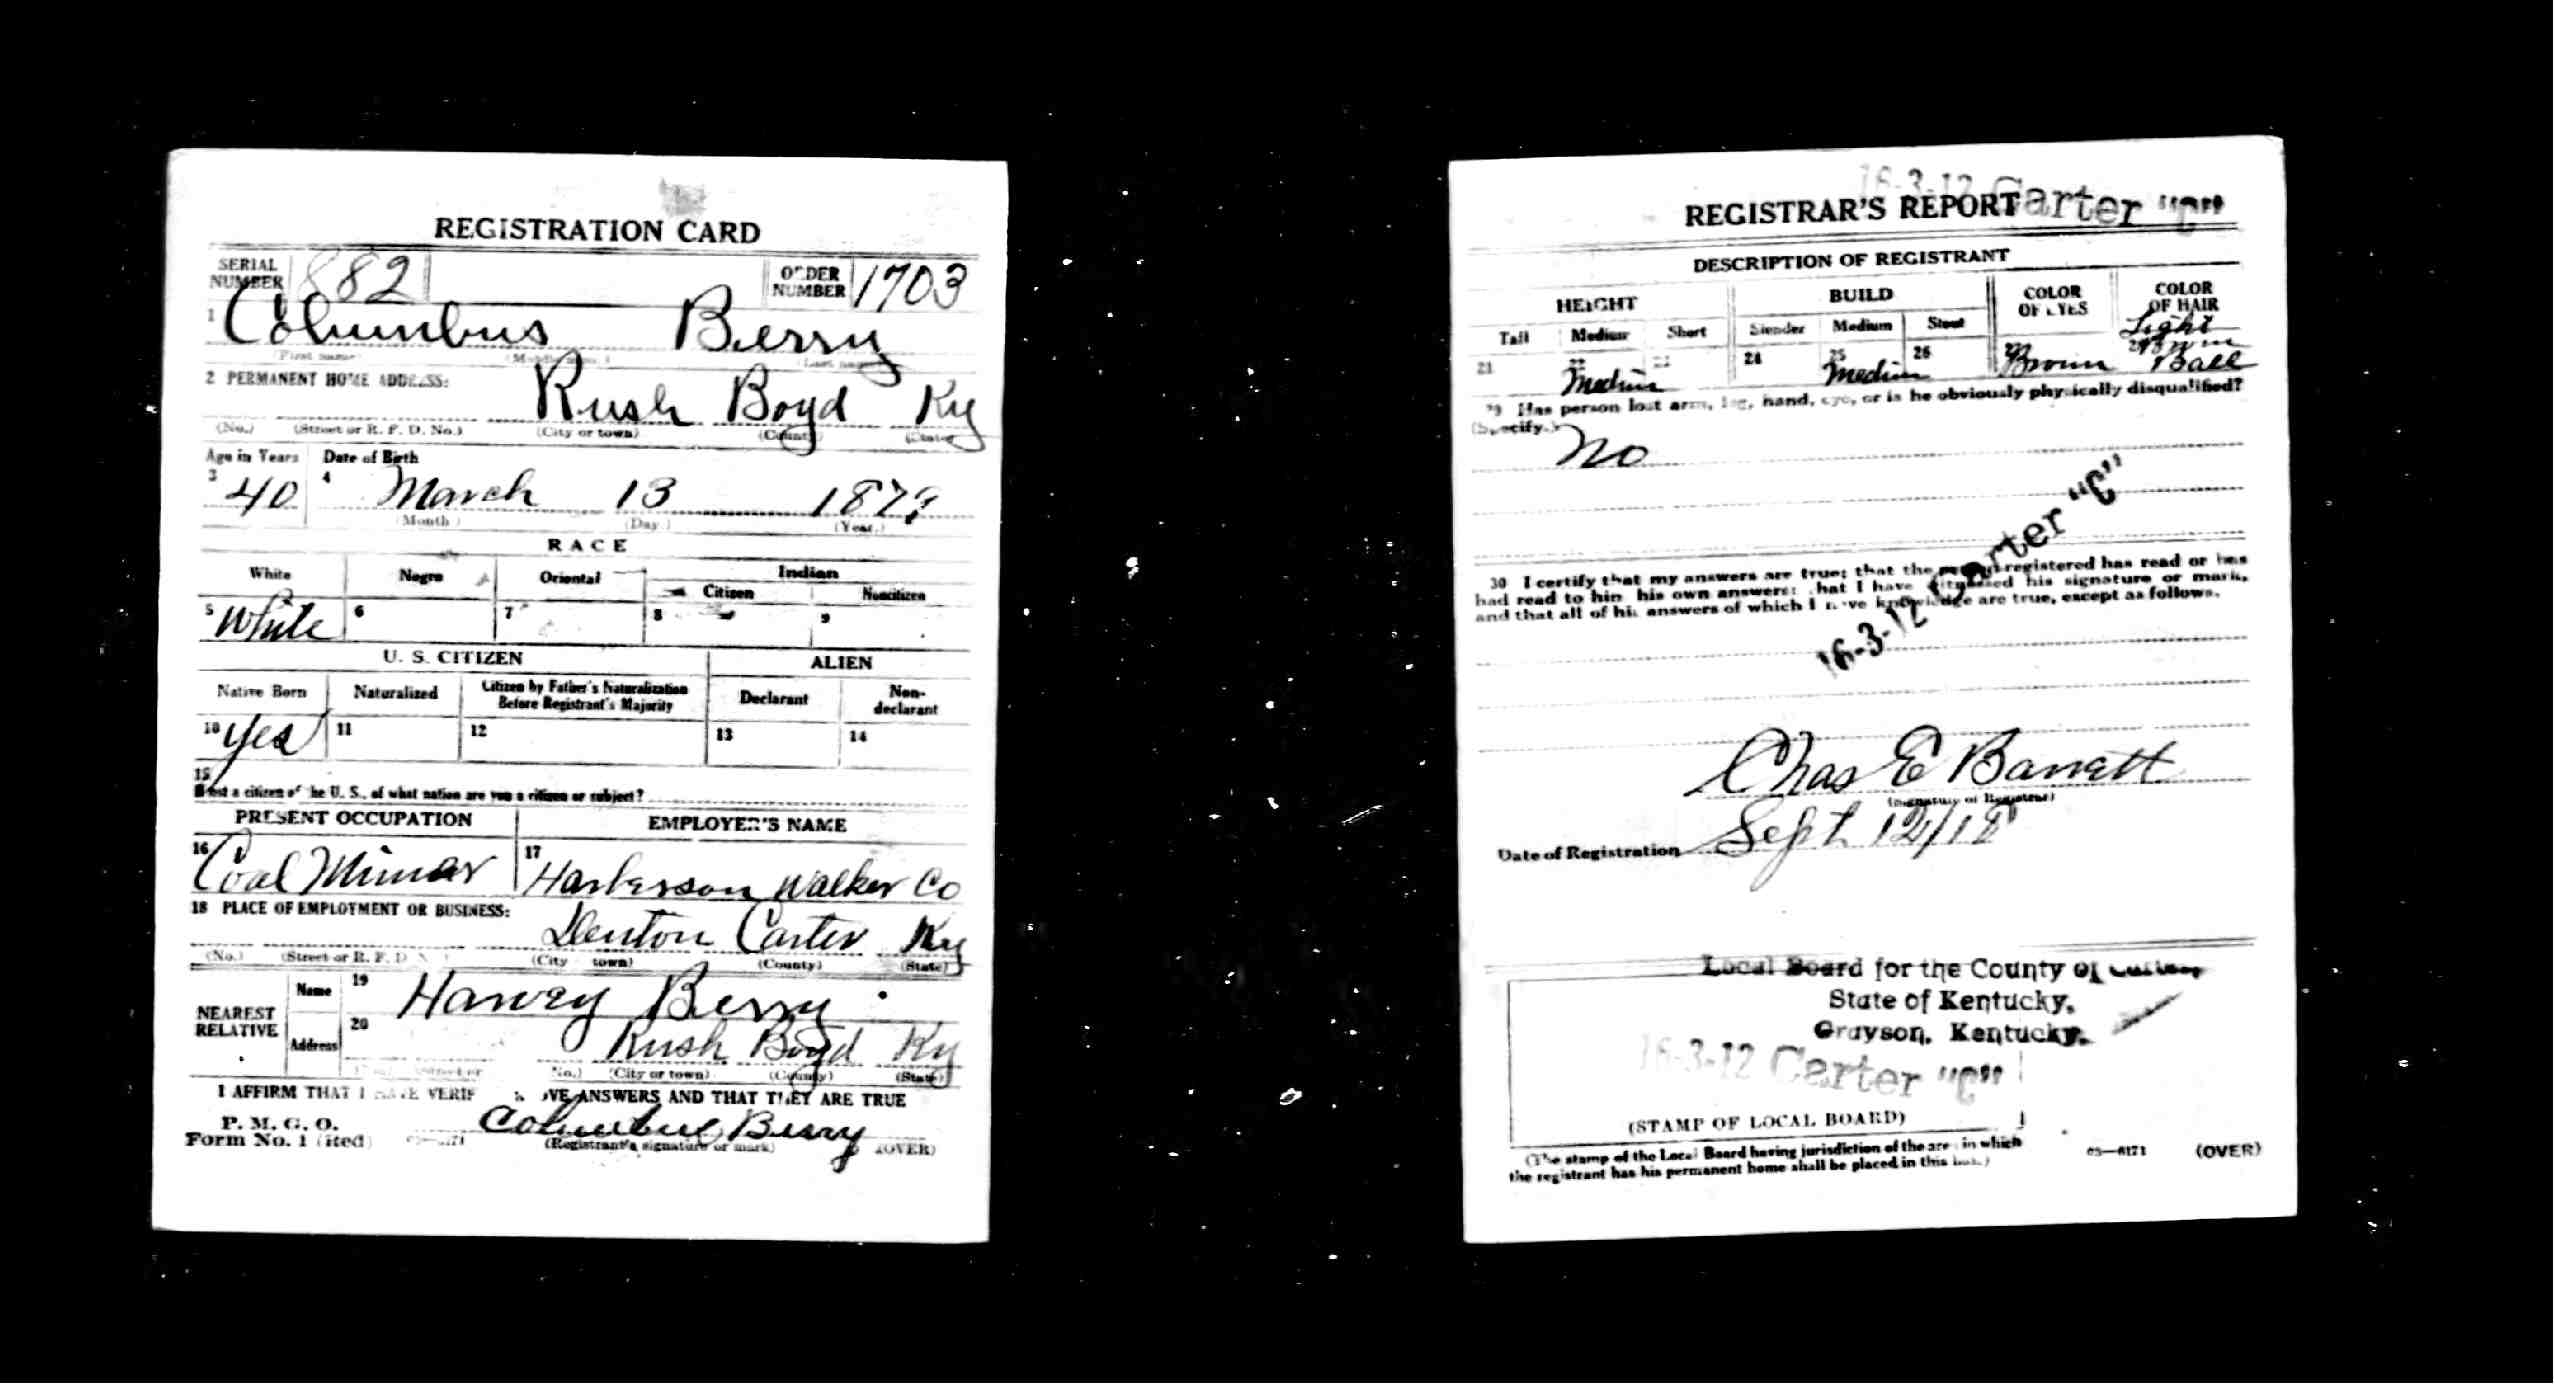 REGISTRATION CARD
SERIAL NUMBER 882 ORDER NUMBER 1703
1 Columbus Berry
(First name) (Middle name) (Last name)
2 PERMANENT HOME ADDRESS:
Rush Boyd Ky
(No.) (Street or R. F. D. No.) (City or town) (County) (State)
Age in Years Date of Birth
3 40 4 March 13 187
(Month) (Day) (Year.)
RACE
White Negro Oriental Indian
Citizen Noncitizen
5 White 6 7 8 9
U. S. CITIZEN ALIEN
Native Born Naturalized Citizen by Father's Naturalization Before Registrant's Majority Declarant Non-declarant
10 Yes 11 12 13 14
15
not a citizen of the U. S., of what nation are you a citizen or subject?
PRESENT OCCUPATION EMPLOYER'S NAME
16 Coal Minar 17 Harberson Walker Co
18 PLACE OF EMPLOYMENT OR BUSINESS:
Denton Carter Ky
(No.) (Street or R. F. D. (City town) (County) (State)
NEAREST RELATIVE Name 19 Harvey Berry
Address 20 Rush Boyd Ky
No.) (City or town) (County) (State)
I AFFIRM THAT I HAVE VERIF OVE ANSWERS AND THAT THEY ARE TRUE
P. M. G. O.
Form No. 1 Columbus Berry
(Registrant's signature or mark) (OVER)
16-3-12 Carter "C"
REGISTRAR'S REPORT
DESCRIPTION OF REGISTRANT
HEIGHT BUILD COLOR OF EYES COLOR OF HAIR
Tall Medium Short Slender Medium Stout
Light
21 22 Medium 24 25 Medium 26 Brown Ball
29 Has person lost arm, leg, hand, eye, or is he obviously physically disqualified?
(Specify.) No
30 I certify that my answers are true; that the person registered has read or has
had read to him his own answers; that I have witnessed his signature or mark,
and that all of his answers of which I have knowledge are true, except as follows.
16-3-12 Carter "C"
Chas E Barrett
(Signature of Registrar)
Date of Registration Sept 12/18
Local Board for the County of
State of Kentucky,
Grayson, Kentucky.
16-3-12 Carter "C"
(STAMP OF LOCAL BOARD)
(The stamp of the Local Board having jurisdiction of the area in which
the registrant has his permanent home shall be placed in this box.)
03—6171 (OVER)